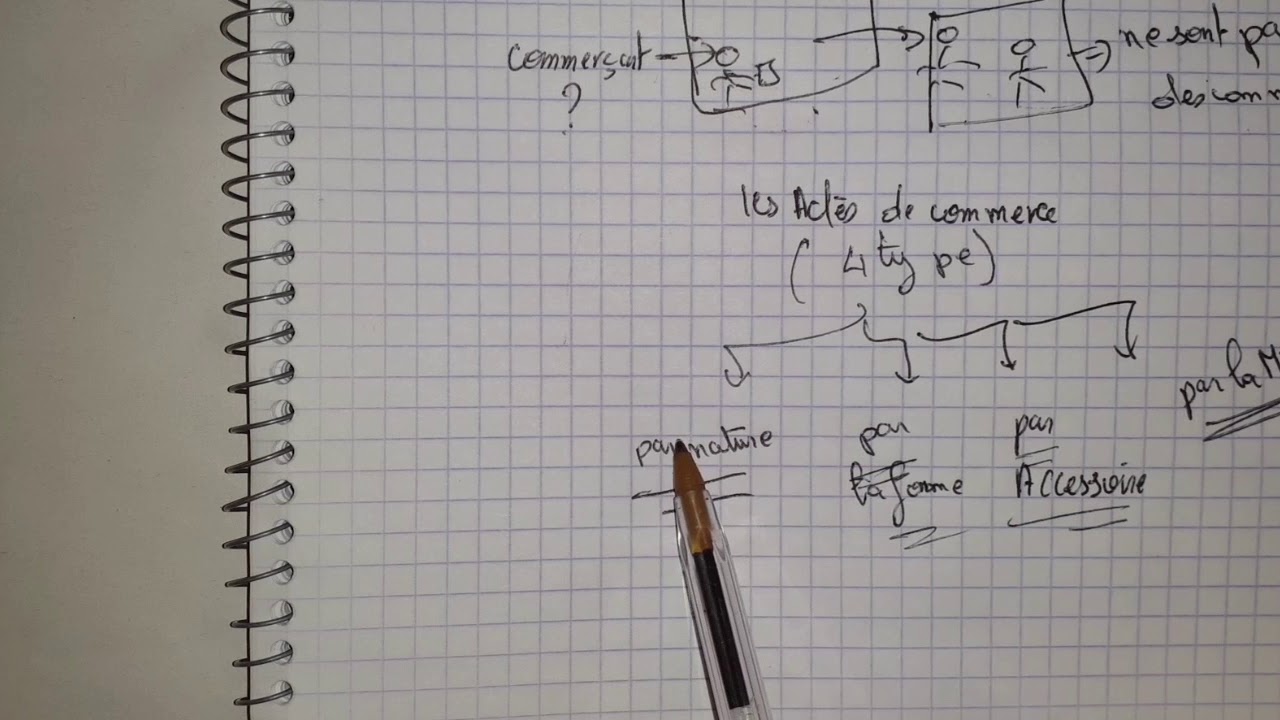 Commerçat
?
ne sont pa
des com
les Actes de commerce
(4 type)
par nature
par
la forme
par
Accessoire
par la M